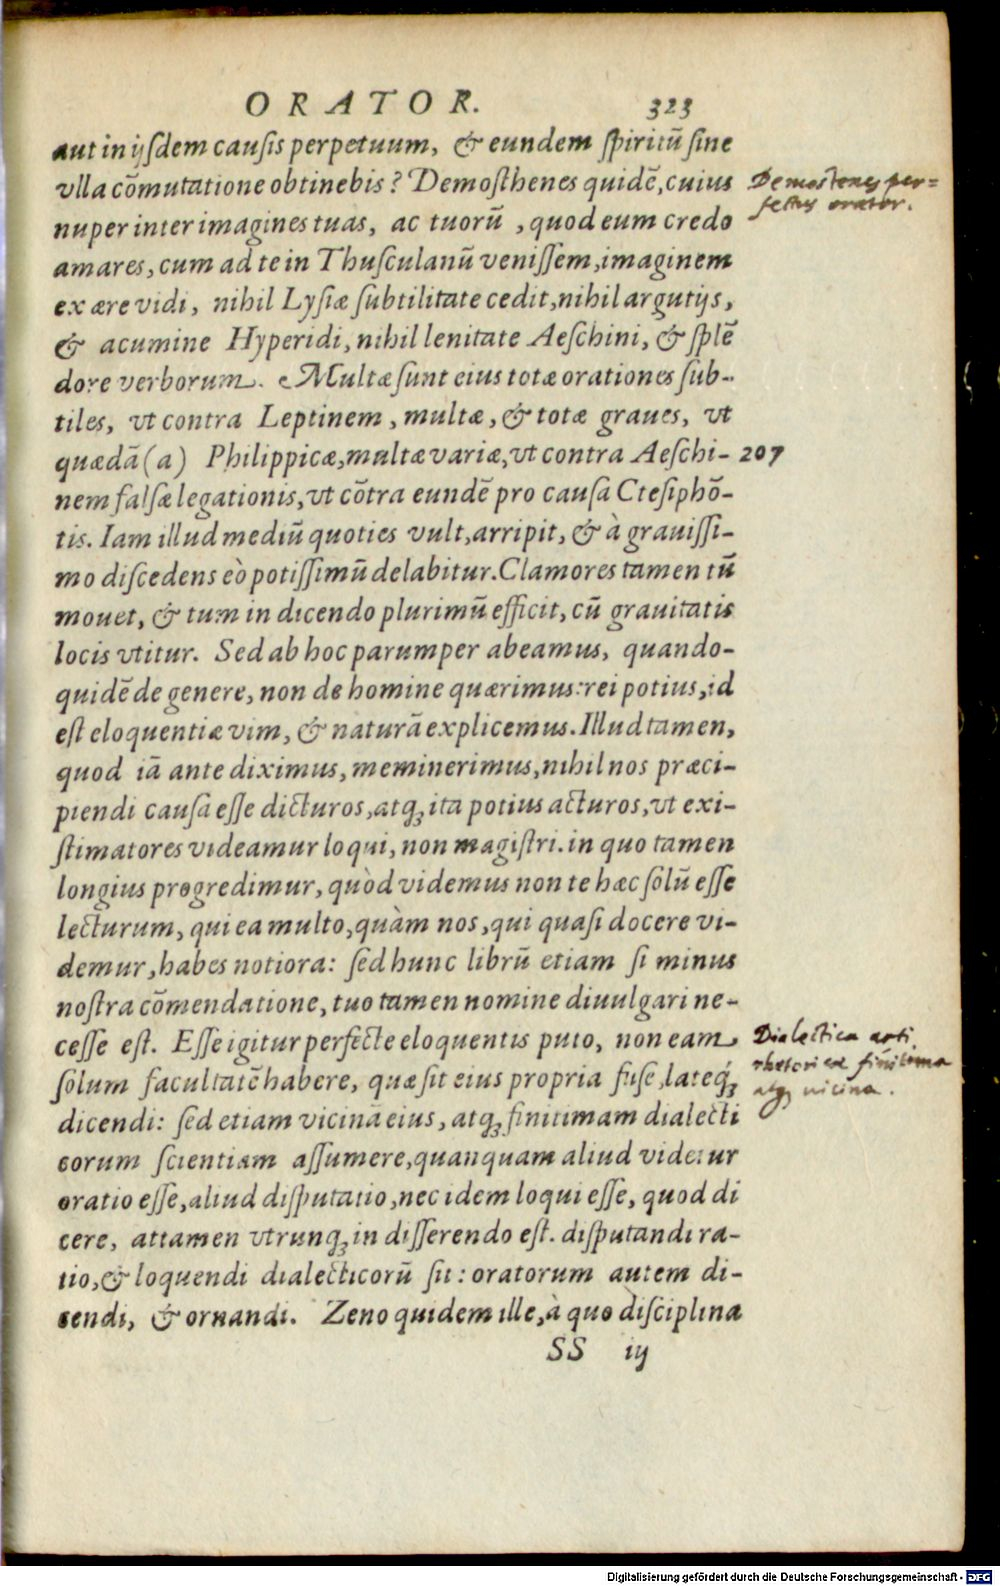 ORATOR. 323
aut in ijsdem causis perpetuum, & eundem spiritū sine
vlla cōmutatione obtinebis? Demosthenes quidē, cuius
Demostenes per=
fectus orator.
nuper inter imagines tuas, ac tuorū, quod eum credo
amares, cum ad te in Thusculanū venissem, imaginem
ex ære vidi, nihil Lysiæ subtilitate cedit, nihil argutijs,
& acumine Hyperidi, nihil lenitate Aeschini, & splē
dore verborum. Multæ sunt eius totæ orationes sub-
tiles, vt contra Leptinem, multæ, & totæ graues, vt
quædā (a) Philippicæ, multæ variæ, vt contra Aeschi- 207
nem falsæ legationis, vt cōtra eundē pro causa Ctesiphō-
tis. Iam illud mediū quoties vult, arripit, & à grauissi-
mo discedens eò potissimū delabitur. Clamores tamen tū
mouet, & tum in dicendo plurimū efficit, cū grauitatis
locis vtitur. Sed ab hoc parumper abeamus, quando-
quidē de genere, non de homine quærimus: rei potius, id
est eloquentiæ vim, & naturā explicemus. Illud tamen,
quod iā ante diximus, meminerimus, nihil nos præci-
piendi causa esse dicturos, atq; ita potius acturos, vt exi-
stimatores videamur loqui, non magistri. in quo tamen
longius progredimur, quòd videmus non te hæc solū esse
lecturum, qui ea multo, quàm nos, qui quasi docere vi-
demur, habes notiora: sed hunc librū etiam si minus
nostra cōmendatione, tuo tamen nomine diuulgari ne-
cesse est. Esse igitur perfecte eloquentis puto, non eam
Dialectica arti
rhetoricæ finitima
atq; uicina.
solum facultatē habere, quæ sit eius propria fuse, lateq;
dicendi: sed etiam vicinā eius, atq; finitimam dialecti
corum scientiam assumere, quanquam aliud videtur
oratio esse, aliud disputatio, nec idem loqui esse, quod di
cere, attamen vtrunq; in disserendo est. disputandi ra-
tio, & loquendi dialecticorū sit: oratorum autem di-
cendi, & ornandi. Zeno quidem ille, à quo disciplina
SS iij
Digitalisierung gefördert durch die Deutsche Forschungsgemeinschaft - DFG